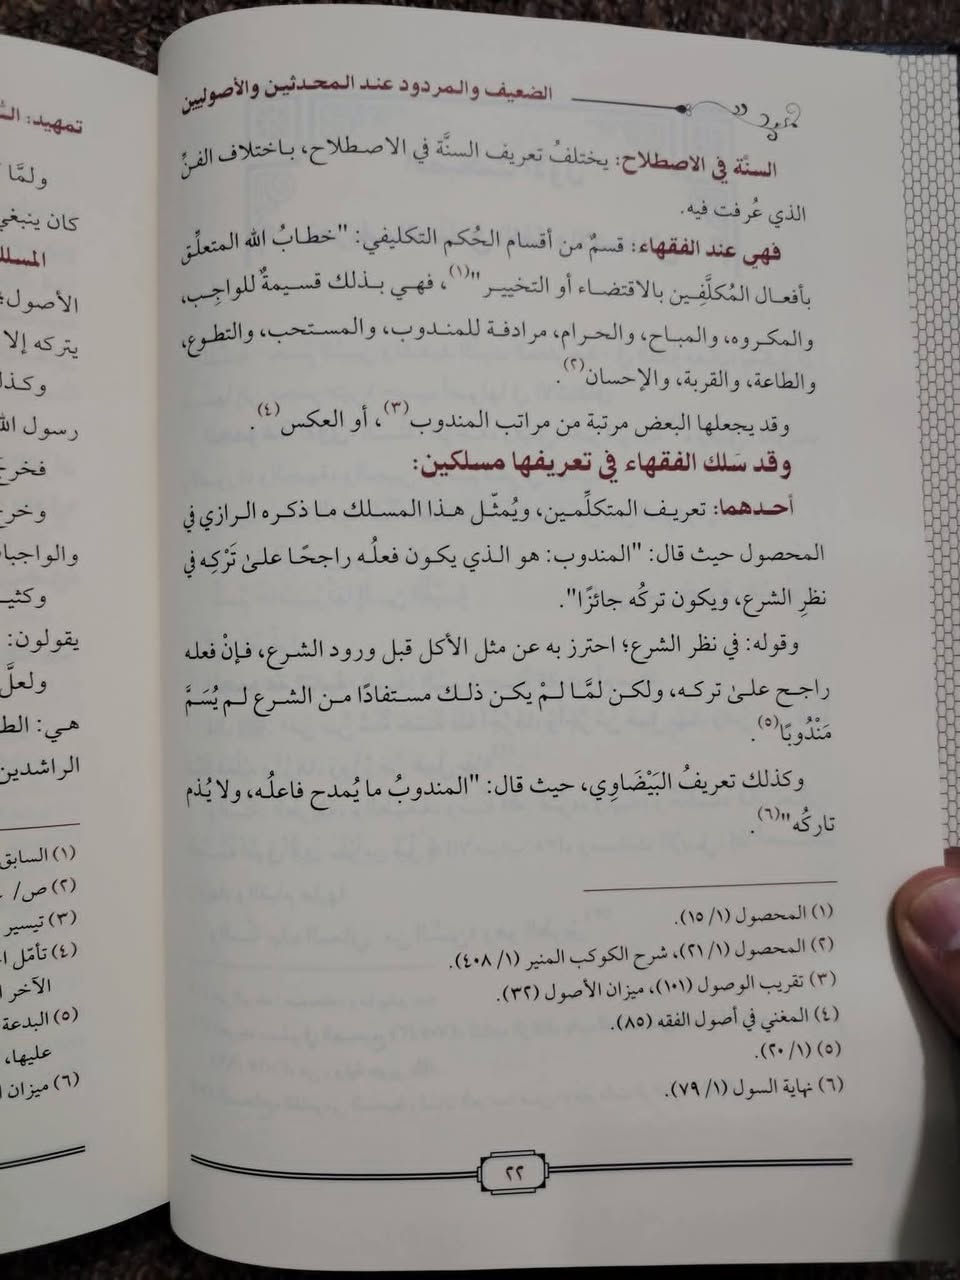 الضعيف والمردود عند المحدثين والأصوليين
السنَّة في الاصطلاح: يختلفُ تعريف السنَّة في الاصطلاح، باختلاف الفنِّ
الذي عُرفت فيه.
فهي عند الفقهاء: قسمٌ من أقسام الحُكم التكليفي: "خطابُ الله المتعلِّق
بأفعال المُكلَّفِين بالاقتضاء أو التخيير"(١)، فهي بذلك قسيمةٌ للواجِب،
والمكروه، والمباح، والحرام، مرادفة للمندوب، والمستحب، والتطوع،
والطاعة، والقربة، والإحسان(٢).
وقد يجعلها البعض مرتبة من مراتب المندوب(٣)، أو العكس(٤).
وقد سَلك الفقهاء في تعريفها مسلكين:
أحدهما: تعريف المتكلِّمين، ويُمثّل هذا المسلك ما ذكره الرازي في
المحصول حيث قال: "المندوب: هو الذي يكون فعلُه راجحًا علىٰ تَرْكِه في
نظرِ الشرع، ويكون تركُه جائزًا".
وقوله: في نظر الشرع؛ احترز به عن مثل الأكل قبل ورود الشرع، فإنْ فعله
راجح علىٰ تركه، ولكن لمَّا لمْ يكن ذلك مستفادًا من الشرع لم يُسَمَّ
مَنْدُوبًا(٥).
وكذلك تعريفُ البَيْضَاوِي، حيث قال: "المندوبُ ما يُمدح فاعلُه، ولا يُذم
تاركُه"(٦).
(١) المحصول (١/ ١٥).
(٢) المحصول (١/ ٢١)، شرح الكوكب المنير (١/ ٤٠٨).
(٣) تقريب الوصول (١٠١)، ميزان الأصول (٣٢).
(٤) المغني في أصول الفقه (٨٥).
(٥) (١/ ٢٠).
(٦) نهاية السول (١/ ٧٩).
٢٢
تمهيد:
ولمَّا
كان ينبغي
الأصول؛
يتركه إلا
وكذل
رسول الله
فخرج
وخرج
والواجبا
وكثي
يقولون:
ولعلَّ
هي: الط
الراشدين
(١) السابق
(٢) ص/
(٣) تيسير
(٤) تأمّل
الآخر
(٥) البدعة
عليها،
(٦) ميزان